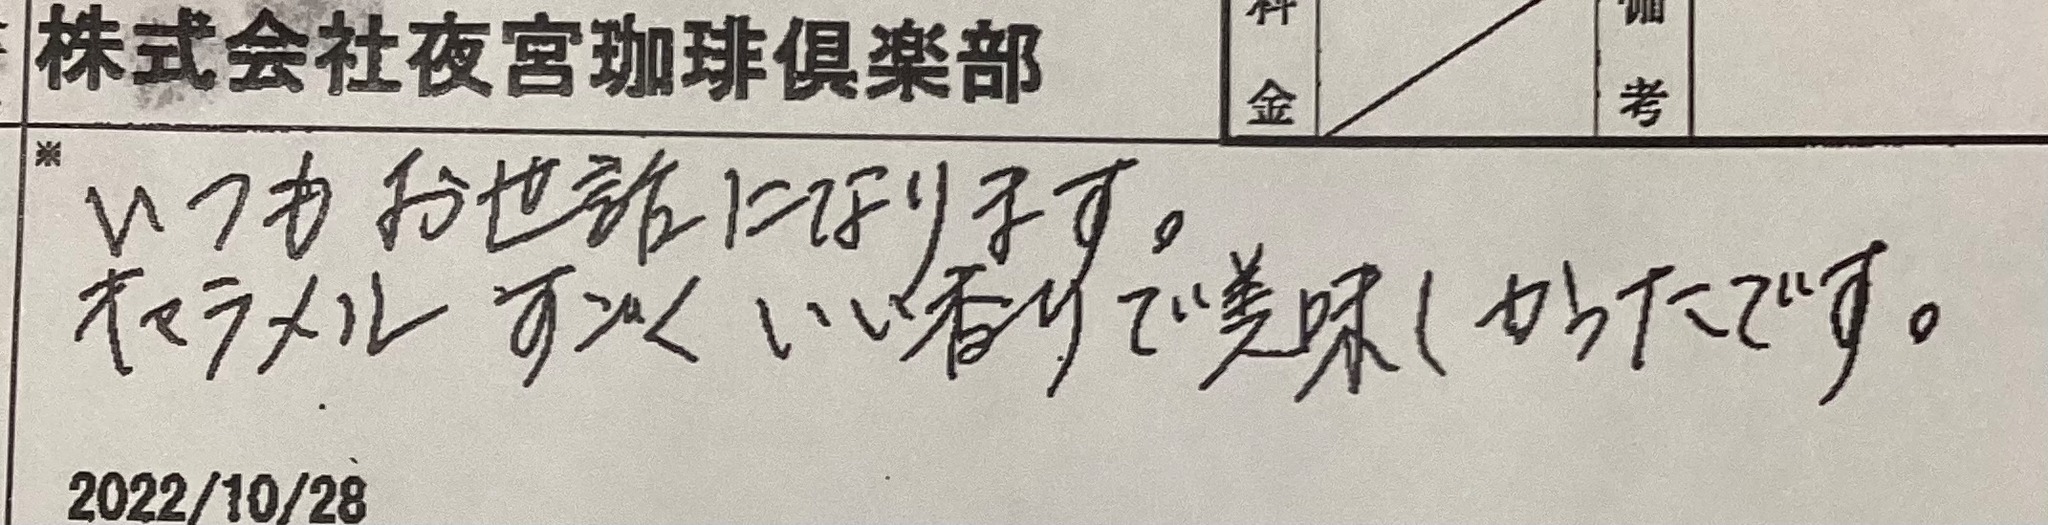 株式会社夜宮珈琲倶楽部
料金
備考
※
いつもお世話になります。
キャラメル すごく いい香りで美味しかったです。
2022/10/28